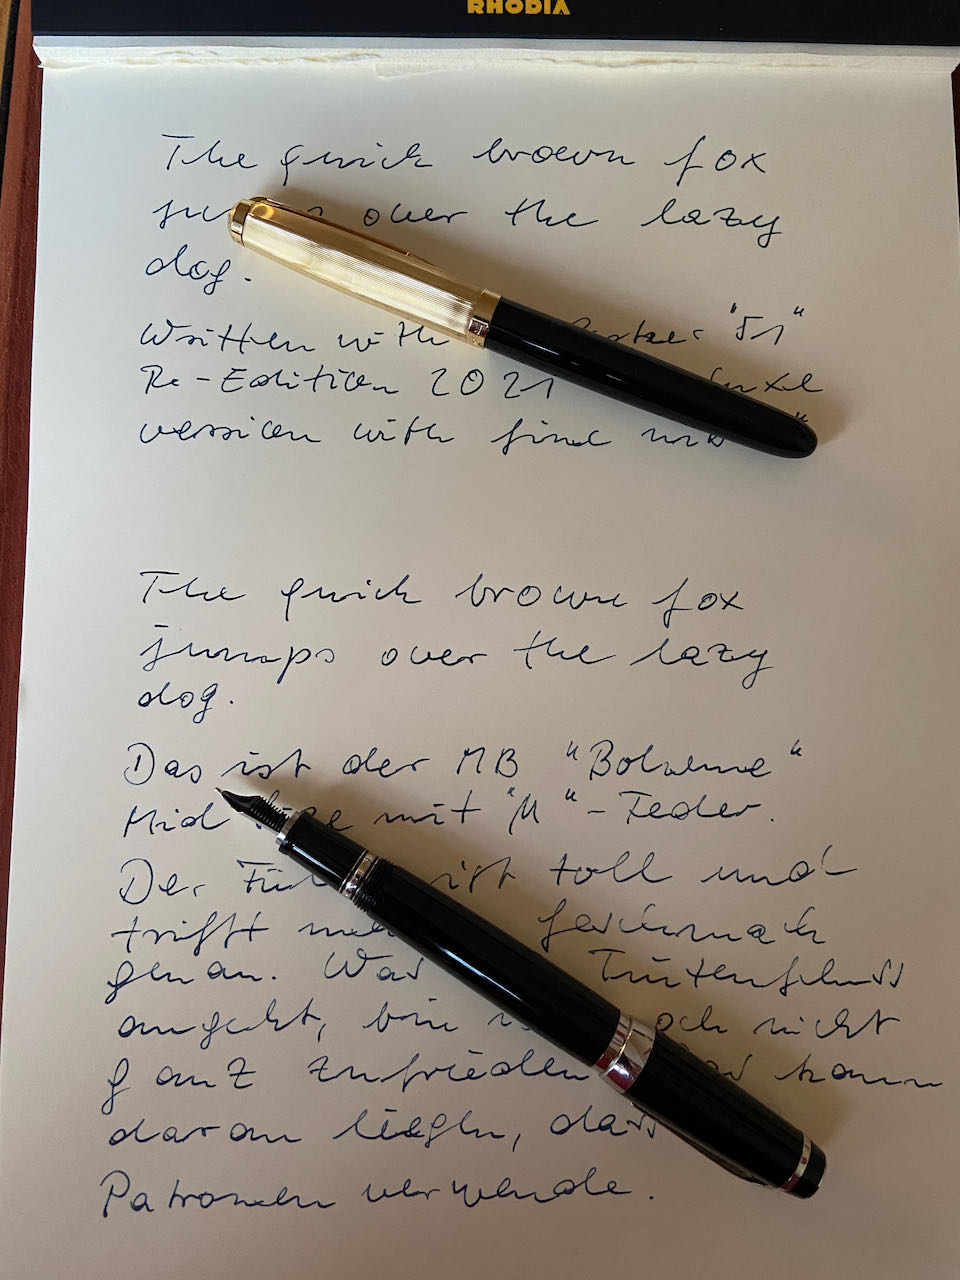 RHODIA
The quick brown fox
over the lazy
dog.
Written with "51"
Re-Edition 2021
version with find
The quick brown fox
jumps over the lazy
dog.
Das ist der MB "Boheme"
mit "M"-Feder.
Der ist toll und
trifft geschmack
genau. Was Tintenfluss
angeht, bin noch nicht
ganz zufrieden kann
daran liegen, dass
Patronen verwende.